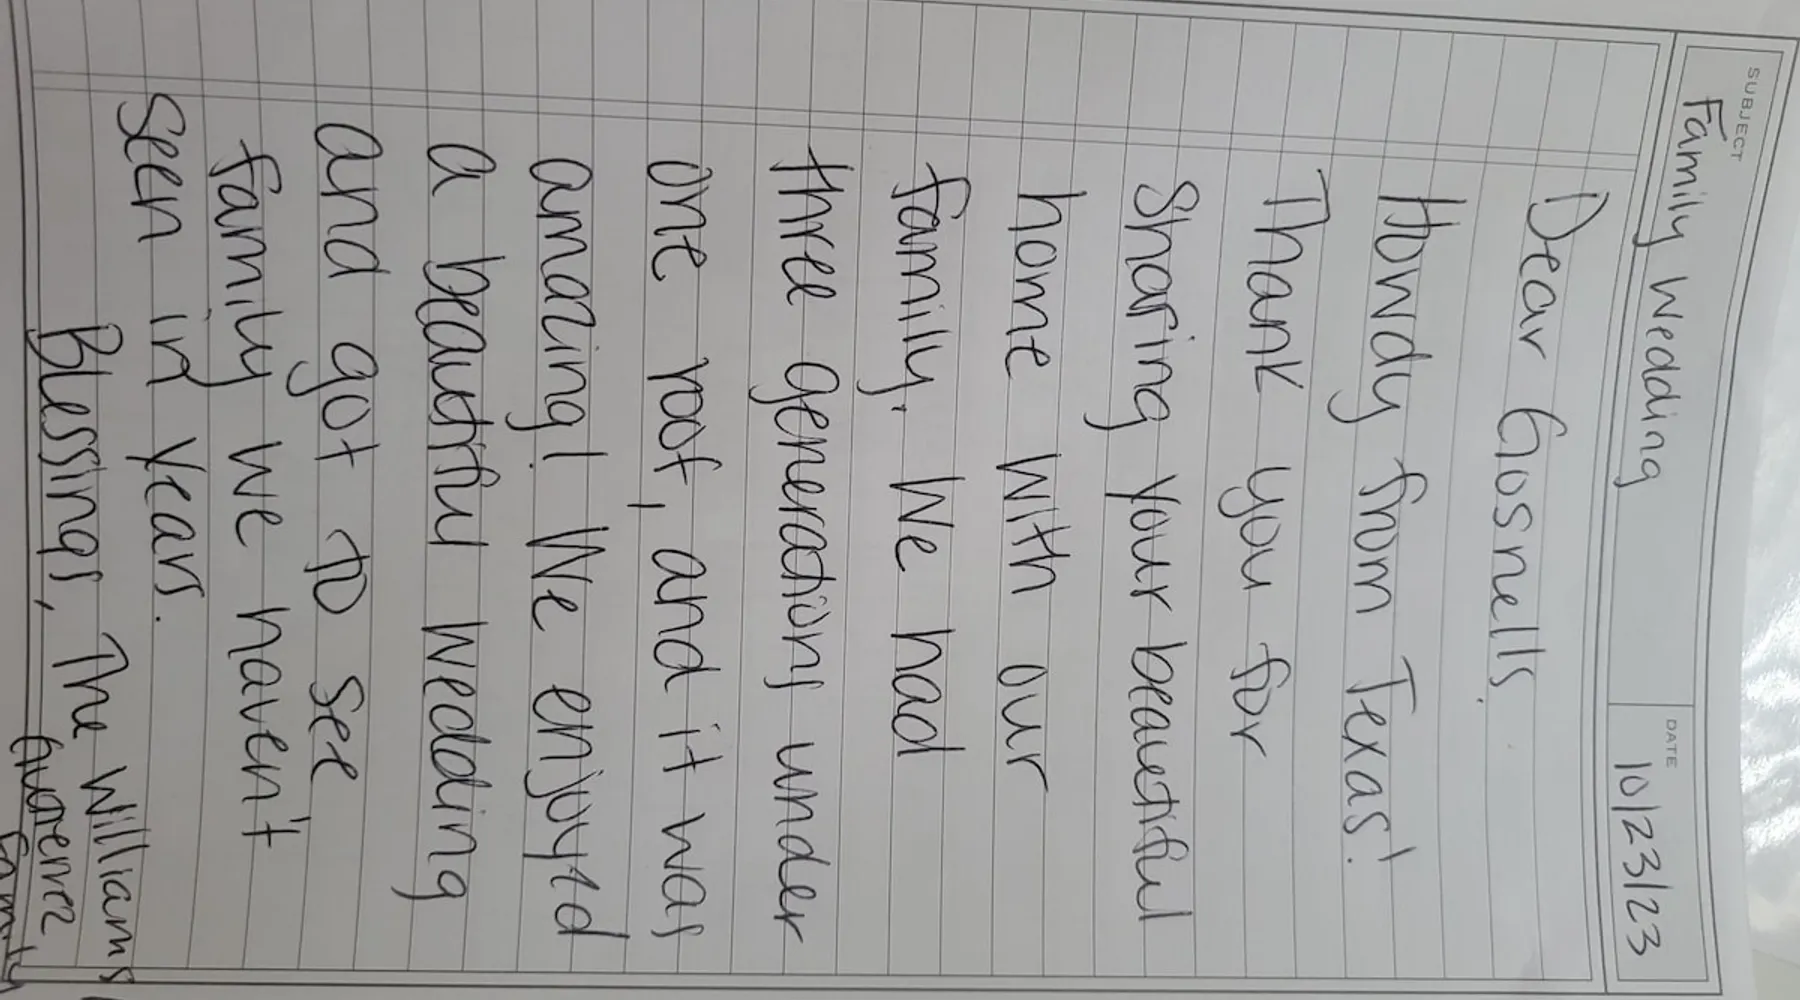 SUBJECT
Family Wedding
DATE
10/23/23
Dear Gosnells.
Howdy from Texas!
Thank you for
Sharing your beautiful
home with our
family. We had
three generations under
one roof, and it was
amazing! We enjoyed
a beautiful wedding
and got to see
family we haven't
seen in years.
Blessings, The Williams
Gutierrez
Family